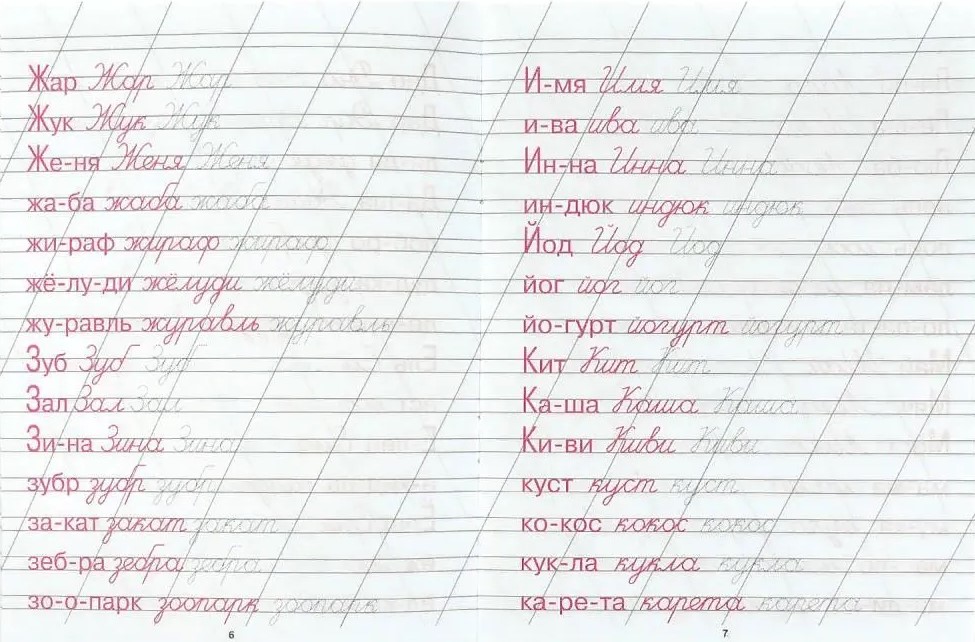 Жар Жар Жар
Жук Жук Жук
Же-ня Женя Женя
жа-ба жаба жаба
жи-раф жираф жираф
жё-лу-ди жёлуди жёлуди
жу-равль журавль журавль
Зуб Зуб Зуб
Зал Зал Зал
Зи-на Зина Зина
зубр зубр зубр
за-кат закат закат
зеб-ра зебра зебра
зо-о-парк зоопарк зоопарк
6
И-мя Имя Имя
и-ва ива ива
Ин-на Инна Инна
ин-дюк индюк индюк
Йод Йод Йод
йог йог йог
йо-гурт йогурт йогурт
Кит Кит Кит
Ка-ша Каша Каша
Ки-ви Киви Киви
куст куст куст
ко-кос кокос кокос
кук-ла кукла кукла
ка-ре-та карета карета
7